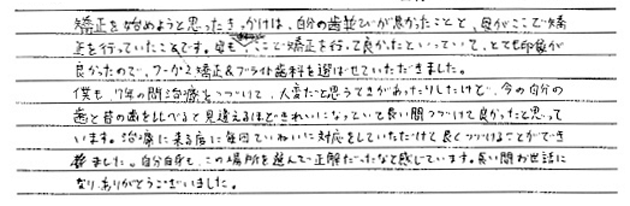 矯正を始めようと思ったきっかけは、自分の歯並びが悪かったことと、母がここで矯
正を行っていたことです。母もここで矯正を行って良かったといっていて、とても印象が
良かったので、ワーカス矯正&ブライト歯科を選ばせていただきました。
僕も、7年の間治療をつづけて、大変だと思うときがあったりしたけど、今の自分の
歯と昔の歯をくらべると見違えるほどきれいになっていて長い間つづけて良かったと思って
います。治療に来る度に毎回ていねいに対応をしていただけて長くつづけることができ
ました。自分自身も、この場所を選んで正解だったなと感じています。長い間お世話に
なりありがとうございました。